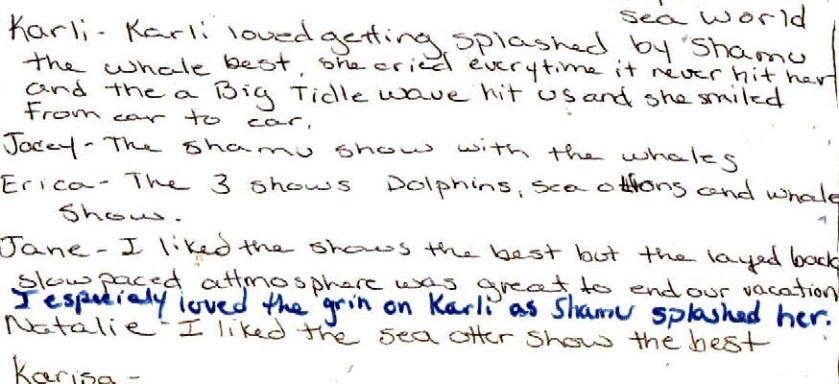 sea world
Karli - Karli loved getting splashed by Shamu
the whale best, she cried everytime it never hit her
and the a Big Tidle wave hit us and she smiled
from ear to ear.
Jacey - The shamu show with the whales
Erica - The 3 shows Dolphins, sea ottions and whale
show.
Jane - I liked the shows the best but the layed back
slow paced attmosphere was great to end our vacation
I especialy loved the grin on Karli as Shamu splashed her.
Natalie - I liked the sea otter show the best
Karisa -